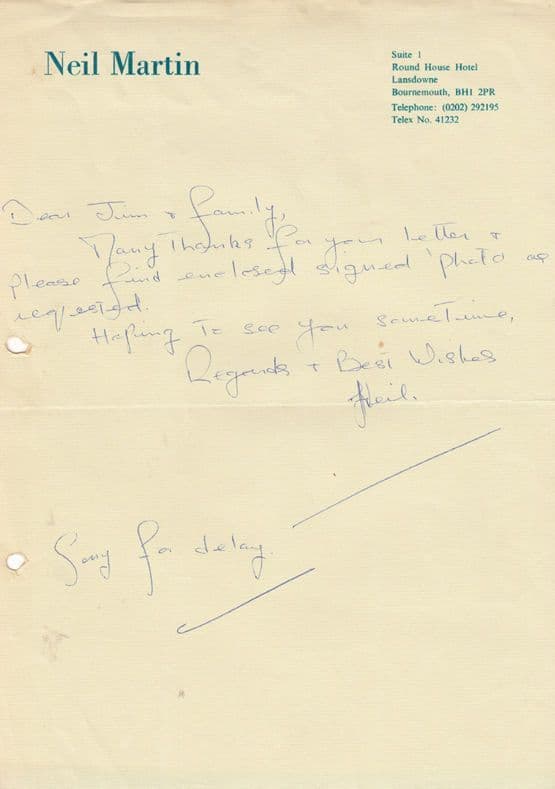 Neil Martin
Suite 1
Round House Hotel
Lansdowne
Bournemouth, BH1 2PR
Telephone: (0202) 292195
Telex No. 41232
Dear Jim & family,
Many Thanks for your letter &
please find enclosed signed 'photo as
requested.
Hoping To see you sometime,
Regards + Best Wishes
Neil.
Sorry for delay.